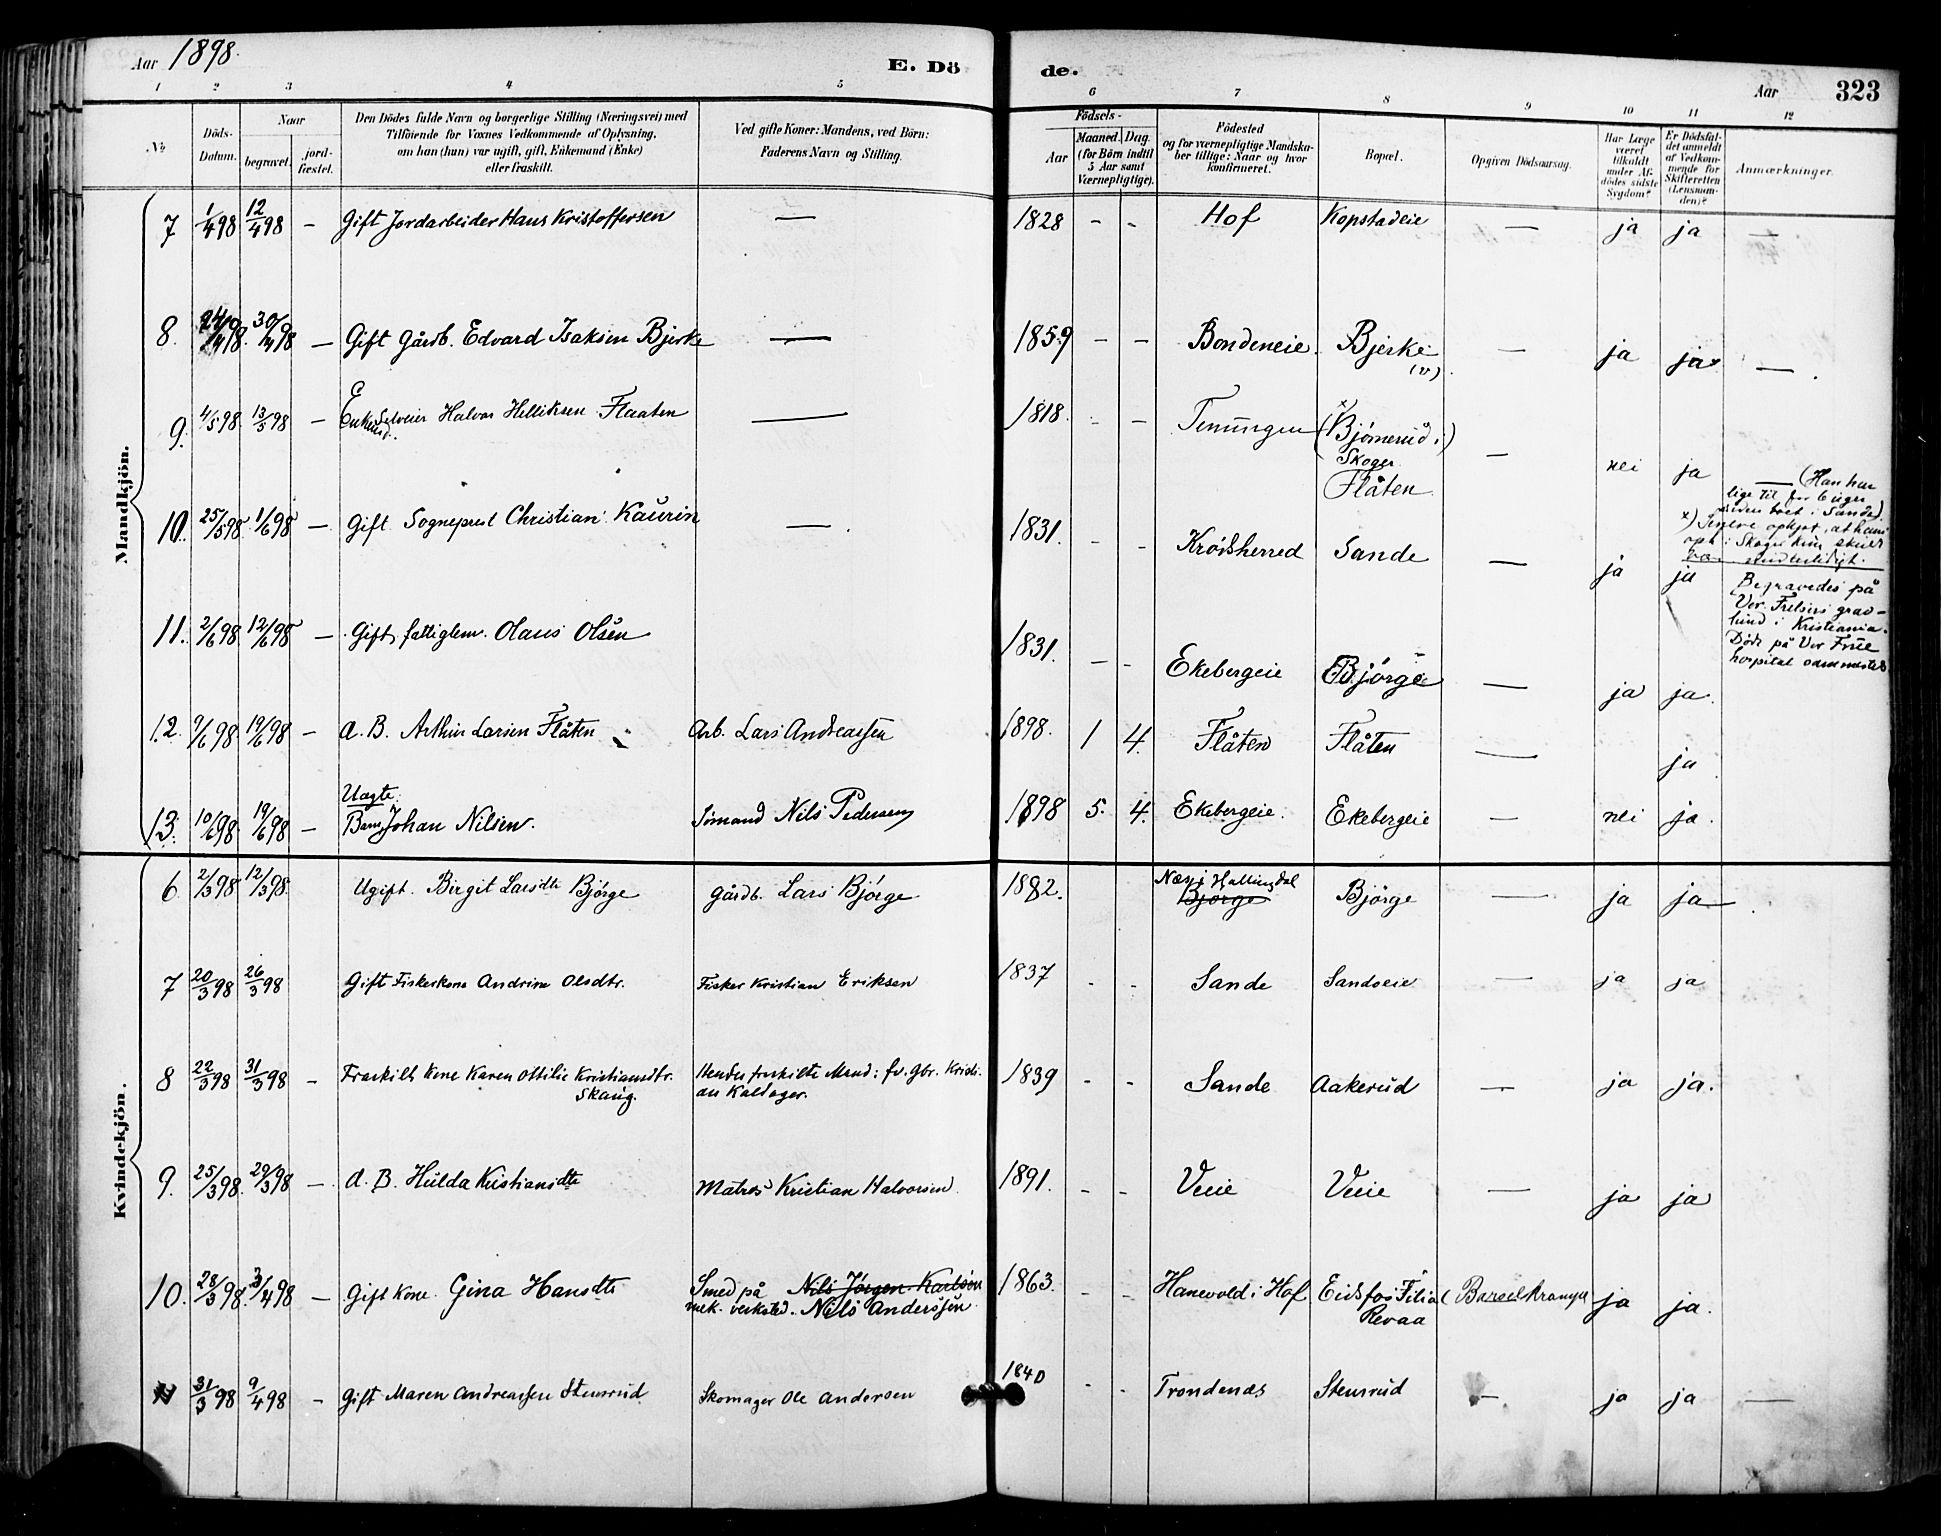 Aar 1898.
E. Dö
de.
Aar 323
1 2 3 4 5 6 7 8 9 10 11 12
No
Döds-Datum.
Naar
begravet.
jord-fæstet.
Den Dödes fulde Navn og borgerlige Stilling (Næringsvei) med
Tilföiende for Voxnes Vedkommende af Oplysning,
om han (hun) var ugift, gift, Enkemand (Enke)
eller fraskilt.
Ved gifte Koner: Mandens, ved Börn:
Faderens Navn og Stilling.
Födsels-
Aar
Maaned. Dag.
(for Börn indtil
5 Aar samt
Værnepligtige).
Födested
og for værnepligtige Mandska-
ber tillige: Naar og hvor
konfirmeret.
Bopæl.
Opgiven Dödsaarsag.
Har Læge
været
tilkaldt
under Af-
dödes sidste
Sygdom?
Er Dödsfal-
det anmeldt
af Vedkom-
mende for
Skifteretten
(Lensman-
den)?
Anmærkninger.
Mandkjön.
7 1/4 98 12/4 98 – Gift Jordarbeider Hans Kristoffersen — 1828 - - Hof Kopstadeie — ja ja —
8. 24/4 98. 30/4 98 — Gift Gårdb. Edvard Isaksen Bjerke — 1859 - - Bondeneie. Bjerke (v) — ja ja — .
9. 4/5 98 13/5 98 – Enkemd. Selveier Halvor Helliksen Flaaten — 1818. - - (x) Bjömerud i) Skoger Flåten — nei ja — (Han har
10. 25/5 98 1/6 98 — Gift Sogneprest Christian Kaurin — 1831. - - Krödsherred Sande — ja ja
Begravedes på
Vor Frelsers grav-
lund i Kristiania.
Död på Vor Frue
hospital sammesteds
11. 2/6 98 12/6 98 — Gift fattiglem. Olaus Olsen 1831. - - Ekebergeie Björge — ja ja.
12. 9/6 98 19/6 98 – A. B. Arthur Larsen Flåten Arb. Lars Andreassen 1898. 1 4. Flåten Flåten — ja
13. 10/6 98 19/6 98 – Uægte Barn Johan Nilsen. Sömand Nils Pedersen 1898 5. 4. Ekebergeie. Ekebergeie — nei ja.
Kvindekjön.
6 2/3 98 12/3 98. Ugift. Birgit Larsdtr Björge gårdb. Lars Björge 1882. Næs i Hallingdal Björge Björge — ja ja — .
7 20/3 98 26/3 98 Gift Fiskerkone Andrine Olsdtr. Fisker Kristian Eriksen 1837 - - Sande Sandseie — ja ja
8 22/3 98 31/3 98 – Fraskilt Kone Karen Ottilie Kristiansdtr. Skaug. Hendes fraskilte Mand: fv. gbr. Kristi-
an Kaldager. 1839 - - Sande Aakerud — ja ja.
9. 25/3 98. 29/3 98 — A. B. Hulda Kristiansdtr Matros Kristian Halvorsen. 1891. - - Veiie Veiie — ja ja
10. 28/3 98. 3/4 98 — Gift Kone Gina Hansdtr Smed på Nils Jörgen Karlsen
mek. verksted. Nils Anderssen. 1863. - - Hanevold i Hof Eidsfos Filial Revaa Barselkrampe ja ja.
11 31/3 98 9/4 98 – Gift Maren Andreassen Stensrud Skomager Ole Andersen 1840 - - Trondenæs Stensrud — ja ja —